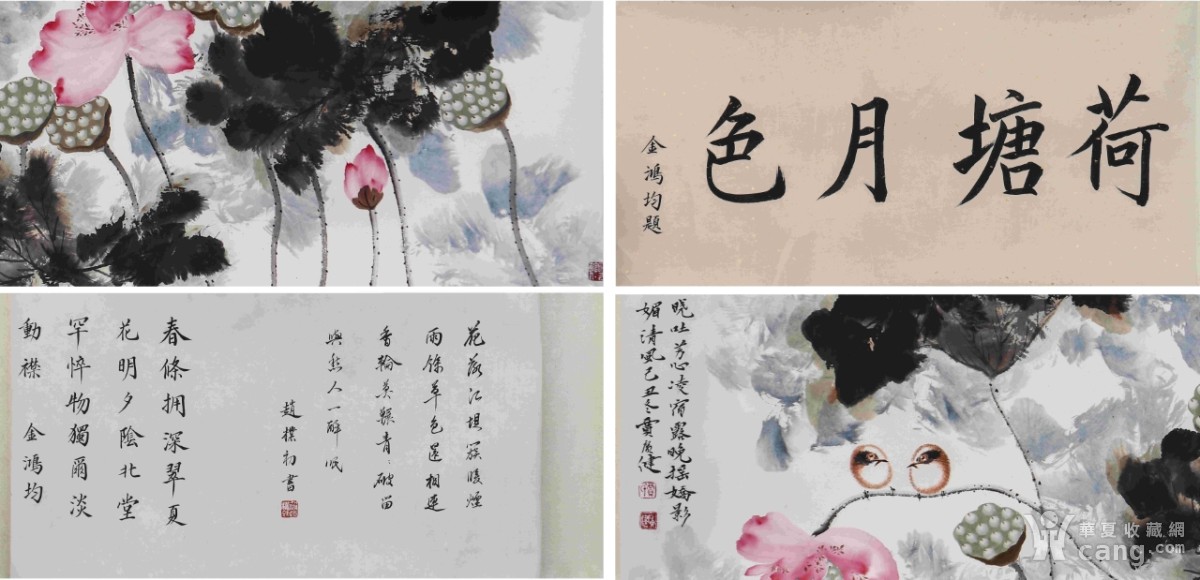 荷塘月色
金鴻均題
花落江堤簇暖煙
雨餘草色遠相連
香輪莫輾青〻破留
與愁人一醉眠
趙樸初書
春條拥深翠夏
花明夕陰北堂
罕悴物獨爾淡
動襟 金鴻均
晓吐芳心凌宿露晚摇嬌影
媚清風己丑冬賈廣健
華夏收藏網
cang.com